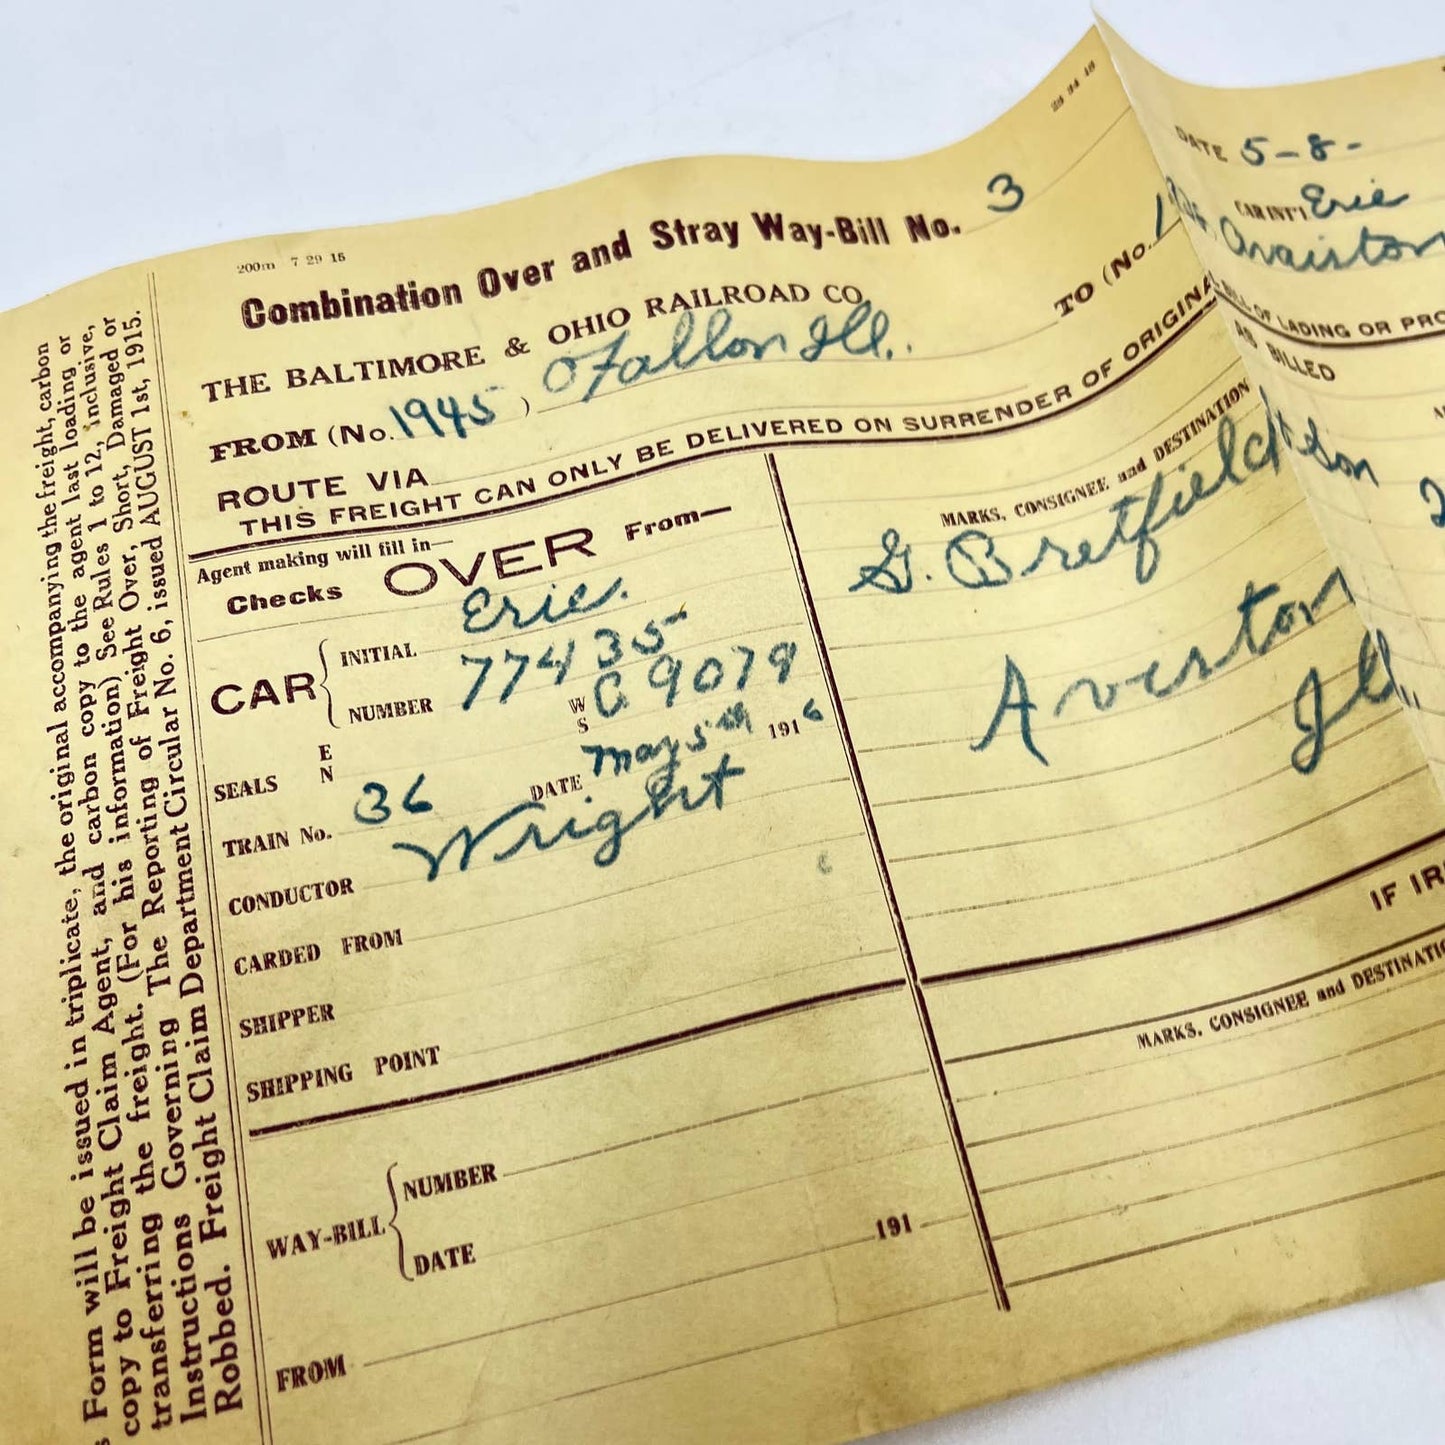 200m 7 29 15
Combination Over and Stray Way-Bill No. 3
THE BALTIMORE & OHIO RAILROAD CO.
FROM (No. 1945 ) O'Fallon Ill. TO (No. 1
ROUTE VIA
THIS FREIGHT CAN ONLY BE DELIVERED ON SURRENDER OF ORIGINA
Agent making will fill in—
Checks OVER From—
CAR INITIAL Erie.
NUMBER 77435
SEALS E N W S C 9079
TRAIN No. 36 DATE May 5th 1916
CONDUCTOR Wright
CARDED FROM
SHIPPER
SHIPPING POINT
WAY-BILL NUMBER
DATE 191
FROM
MARKS, CONSIGNEE and DESTINATION
G. Bretfield & Son
Aviston
Ill.
DATE 5-8-
CAR INT'L Erie
BILL OF LADING OR PRO
AS BILLED
2
IF IR
MARKS, CONSIGNEE and DESTINATIO
Form will be issued in triplicate, the original accompanying the freight, carbon
copy to Freight Claim Agent, and carbon copy to the agent last loading or
transferring the freight. (For his information) See Rules 1 to 12, inclusive,
Instructions Governing The Reporting of Freight Over, Short, Damaged or
Robbed. Freight Claim Department Circular No. 6, issued AUGUST 1st, 1915.